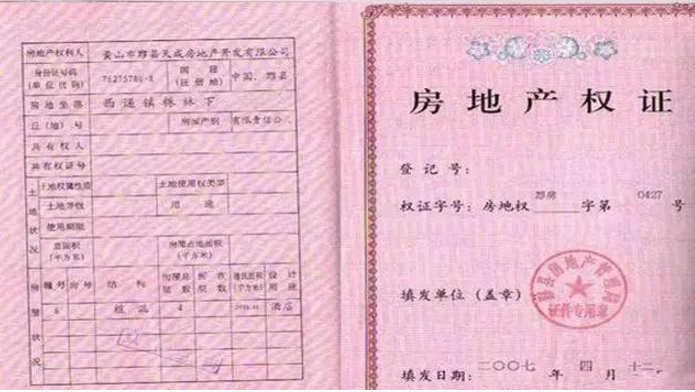 房地产权利人 黄山市黟县天成房地产开发有限公司
身份证号码
(单位代码) 75275786-X 国籍
(注册地) 中国、黟县
房地坐落 西递镇
丘(地)号 房屋产别 有限责任公司
共有权人
共有权证号
土地状况 土地权属性质 土地使用权类型
土地等级 用途
使用期限
总面积
(平方米) 房屋占地面积
(平方米)
房屋状况 幢号 房号 结构 房屋总层数 所在层数 建筑面积
(平方米) 设计用途
6 4 酒店
房地产权证
登记号：
权证字号：房地权 黟房 字第 0427 号
填发单位(盖章)
黟县房地产管理局
证件专用章
填发日期：二〇〇七年四月十二